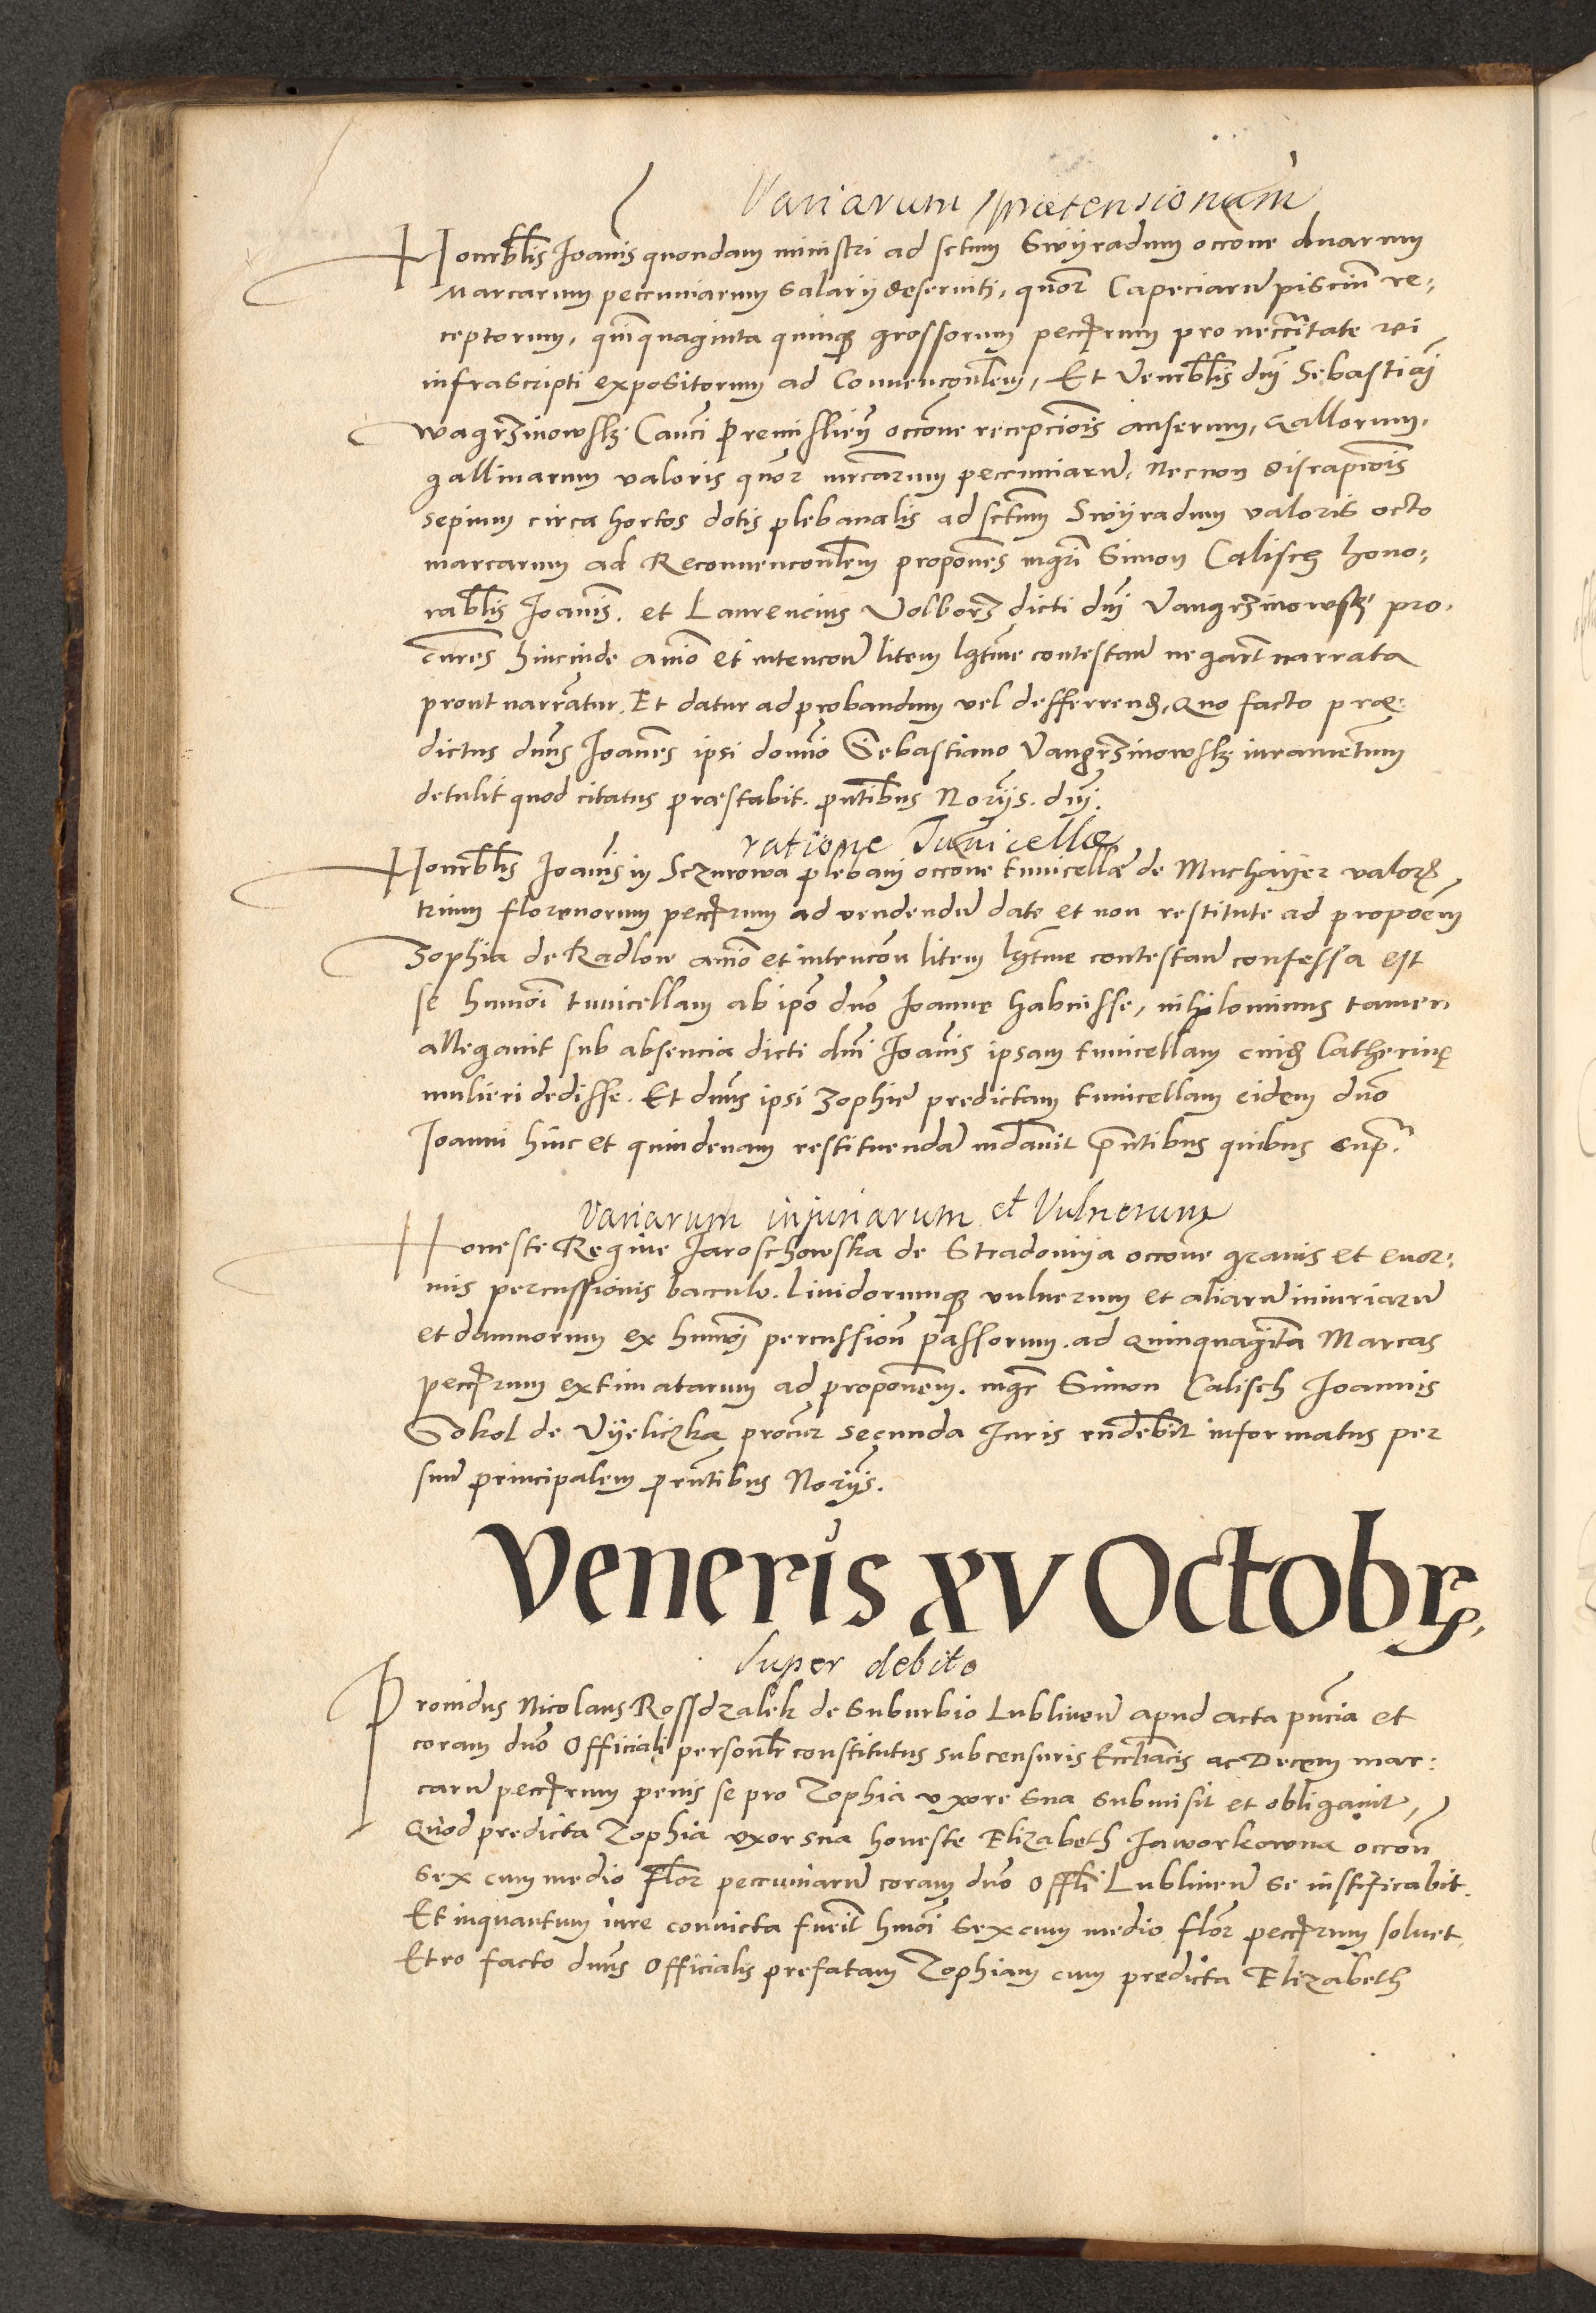 Variarum prætensionum
Honorbilis Joannis quondam ministri ad sctum Swyradum occone duarum
Marcarum pecuniarum salarij deserviti, quor Capeciarum pisciu re¬
ceptorum, quinquaginta quinq grossorum pecciarum pro neccitate rei
infrascripti expositorum ad Convenconlem, Et Venerblis dni Sebastiani
Wagrzinowsky Canci Premislien occone recepcionis anserum, gallorum,
gallinarum valoris quor mrcarum pecuniaru, Necnon disrapconis
sepium circa hortos dotis plebanalis ad sctum Swyradum valoris octo
marcarum ad Reconvenconlem propones mgri Simon Calisch hono¬
rablis Joannis. et Laurencius Volborz dicti dni Vangrzinowsky pro¬
cures hincinde animo et intencone litem lgtime contestan negarunt narrata
prout narrantur. Et datur ad probandum vel defferrend, Quo facto præ¬
dictus dnus Joannes ipsi domino Sebastiano Vangrzinowsky iuramentum
detulit quod citatus præstabit. pntibus Norijs. dni.
ratione Tunicellæ
Honorblis Joannis in Sczurowa plebani occone tunicellæ de Muchayer valoris
trium florenorum pecciarum ad vendendu date et non restitute ad propoem
Zophia de Radlow animo et intencone litem lgtime contestan confessa est
se humoi tunicellam ab ipso dno Joanne habuisse, nihilominus tamen
allegavit sub absencia dicti dni Joannis ipsam tunicellam cuidam Catherine
mulieri dedisse. Et dnus ipsi Zophie predictam tunicellam eidem dno
Joanni hinc et quindenam restituendam mdavit pntibus quibus supra
Variarum injuriarum et Vulnerum
Honeste Regine Jaroschowska de Stradomya occone gravis et enor¬
mis percussionis bacculo. Lividorumq vulnerum et aliaru iniuriaru
et damnorum ex humoi percussione passorum. ad quinquaginta Marcas
pecciarum extimatarum ad proponem. mgr Simon Calisch Joannis
Sokol de Vyeliczka procur secunda Juris rndebit informatus per
suu principalem pntibus Norijs.
Veneris XV Octobris
Super debito
Providus Nicolaus Rossdzalek de Suburbio Lublinen apud acta pncia et
coram dno Officiali personlr constitutus sub censuris Eccliacis ac Decem mar¬
caru pecciarum penis se pro Zophia uxore sua submisit et obligavit,
Quod predicta Zophia uxor sua honeste Elizabeth Jaworkowna occone
sex cum medio Flor pecuniaru coram dno Offli Lublinen se iustificabit.
Et inquantum iure convicta fuerit hmoi sex cum medio flor pecciarum solvet.
Et eo facto dnus Officialis prefatam Zophiam cum predicta Elizabeth